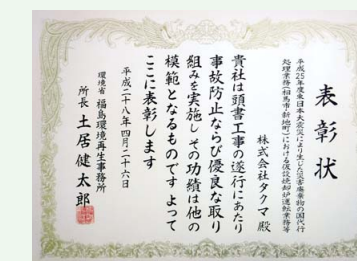 表彰状
平成25年度東日本大震災により生じた災害廃棄物の国代行
処理業務(相馬市・新地町)における仮設焼却炉運転業務等
株式会社タクマ 殿
貴社は頭書工事の遂行にあたり
事故防止ならび優良な取り
組みを実施しその功績は他の
模範となるものです よって
ここに表彰します
平成二十八年四月二十六日
環境省 福島環境再生事務所
所長 土居健太郎